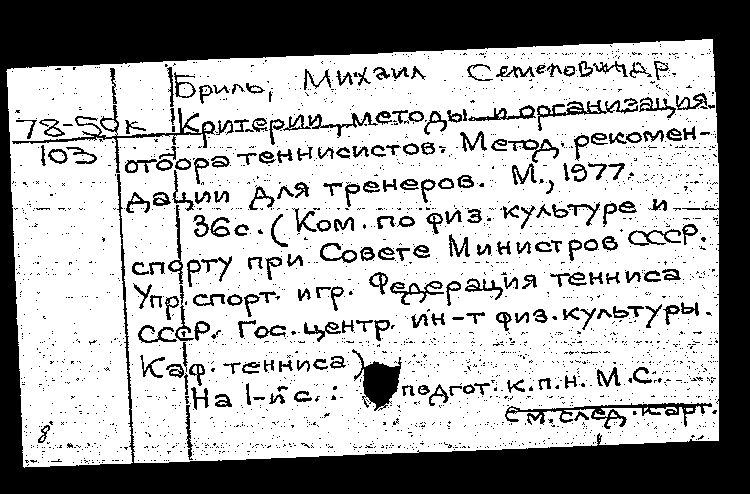 Бриль, Михаил Семенович др.
78-50к Критерии, методы и организация
103 отбора теннисистов. Метод. рекомен-
дации для тренеров. М., 1977.
36с. (Ком. по физ. культуре и
спорту при Совете Министров СССР.
Упр. спорт. игр. Федерация тенниса
СССР. Гос. центр. ин-т физ. культуры.
Каф. тенниса)
На 1-й с.: подгот. к.п.н. М.С.
См. след. карт.
8